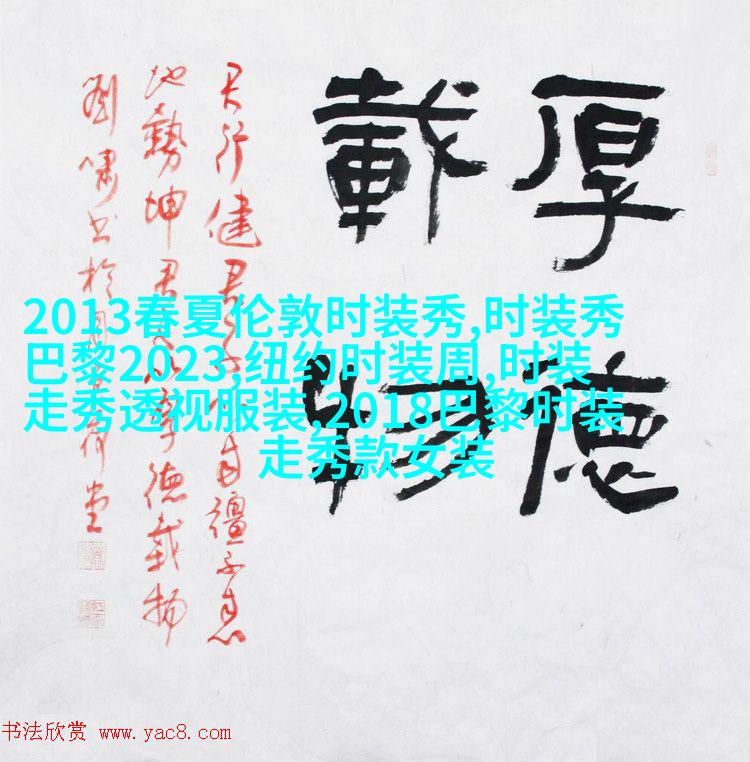 厚德
載物
天行健君子以自彊不息
地勢坤君子以厚德載物
劉嘯书於
2013春夏伦敦时装秀,时装秀
巴黎2023,纽约时装周,时装
走秀透视服装,2018巴黎时装
走秀款女装
书法欣赏 www.yac8.com